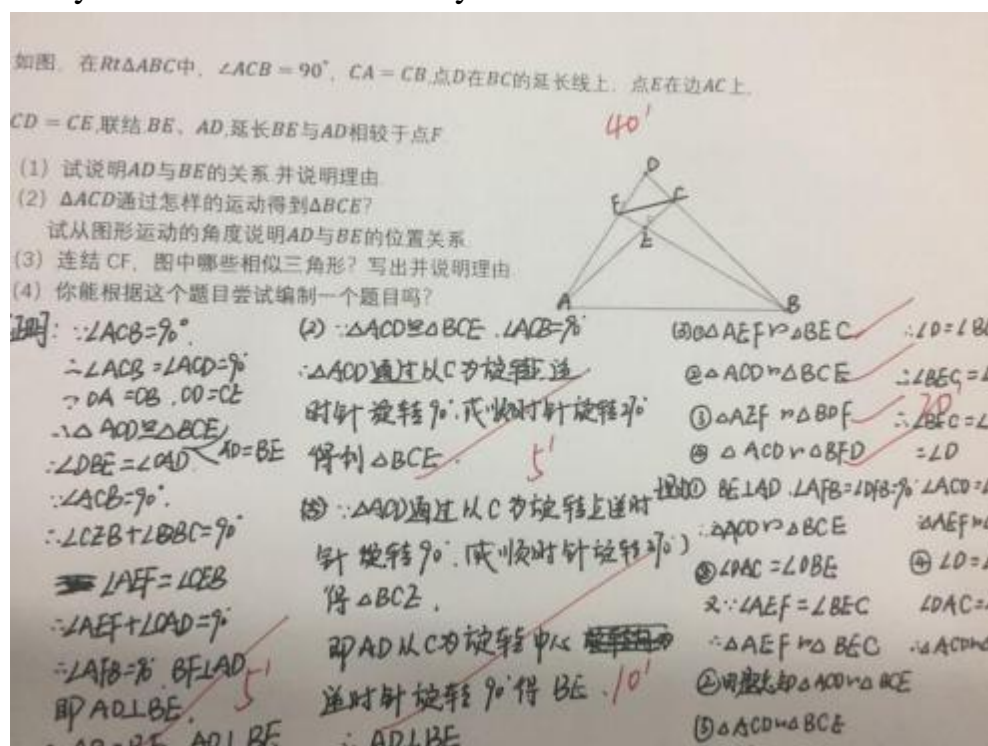 如图，在Rt△ABC中，∠ACB = 90°，CA = CB,点D在BC的延长线上，点E在边AC上，
CD = CE,联结BE、AD,延长BE与AD相较于点F
40'
(1) 试说明AD与BE的关系.并说明理由
(2) △ACD通过怎样的运动得到△BCE？
试从图形运动的角度说明AD与BE的位置关系
(3) 连结 CF，图中哪些相似三角形？写出并说明理由
(4) 你能根据这个题目尝试编制一个题目吗？
D
F C
E
A B
证明: ∵∠ACB=90°.
∴∠ACB=∠ACD=90°
∵CA=CB.CD=CE
∴△ACD≌△BCE
∴∠DBE=∠CAD AD=BE
∵∠ACB=90°.
∴∠CEB+∠EBC=90°
∠AEF=∠CEB
∴∠AEF+∠CAD=90°
∴∠AFB=90° BF⊥AD
即AD⊥BE.
5'
AD=BE AD⊥BE
(2) ∵△ACD≌△BCE.∠ACB=90°
∴△ACD通过以C为旋转点逆
时针旋转90°.或顺时针旋转270°
得到△BCE.
5'
∵△ACD通过以C为旋转点逆时
针旋转90°.(或顺时针旋转270°)
得△BCE.
即AD以C为旋转中心
逆时针旋转90°得BE.
10'
∴AD⊥BE
(3)①△AEF∽△BEC
②△ACD∽△BCE
③△AEF∽△BDF
④△ACD∽△BFD
20'
① BE⊥AD.∠AFB=∠DFB=90°
∴△ACD∽△BCE
∠DAC=∠DBE
又∵∠AEF=∠BEC
∴△AEF∽△BEC
∽△BCE
③△ACD∽△BCE
∴∠BEC=∠
=∠D
∠ACD=∠
④∠D=∠
∠DAC=∠